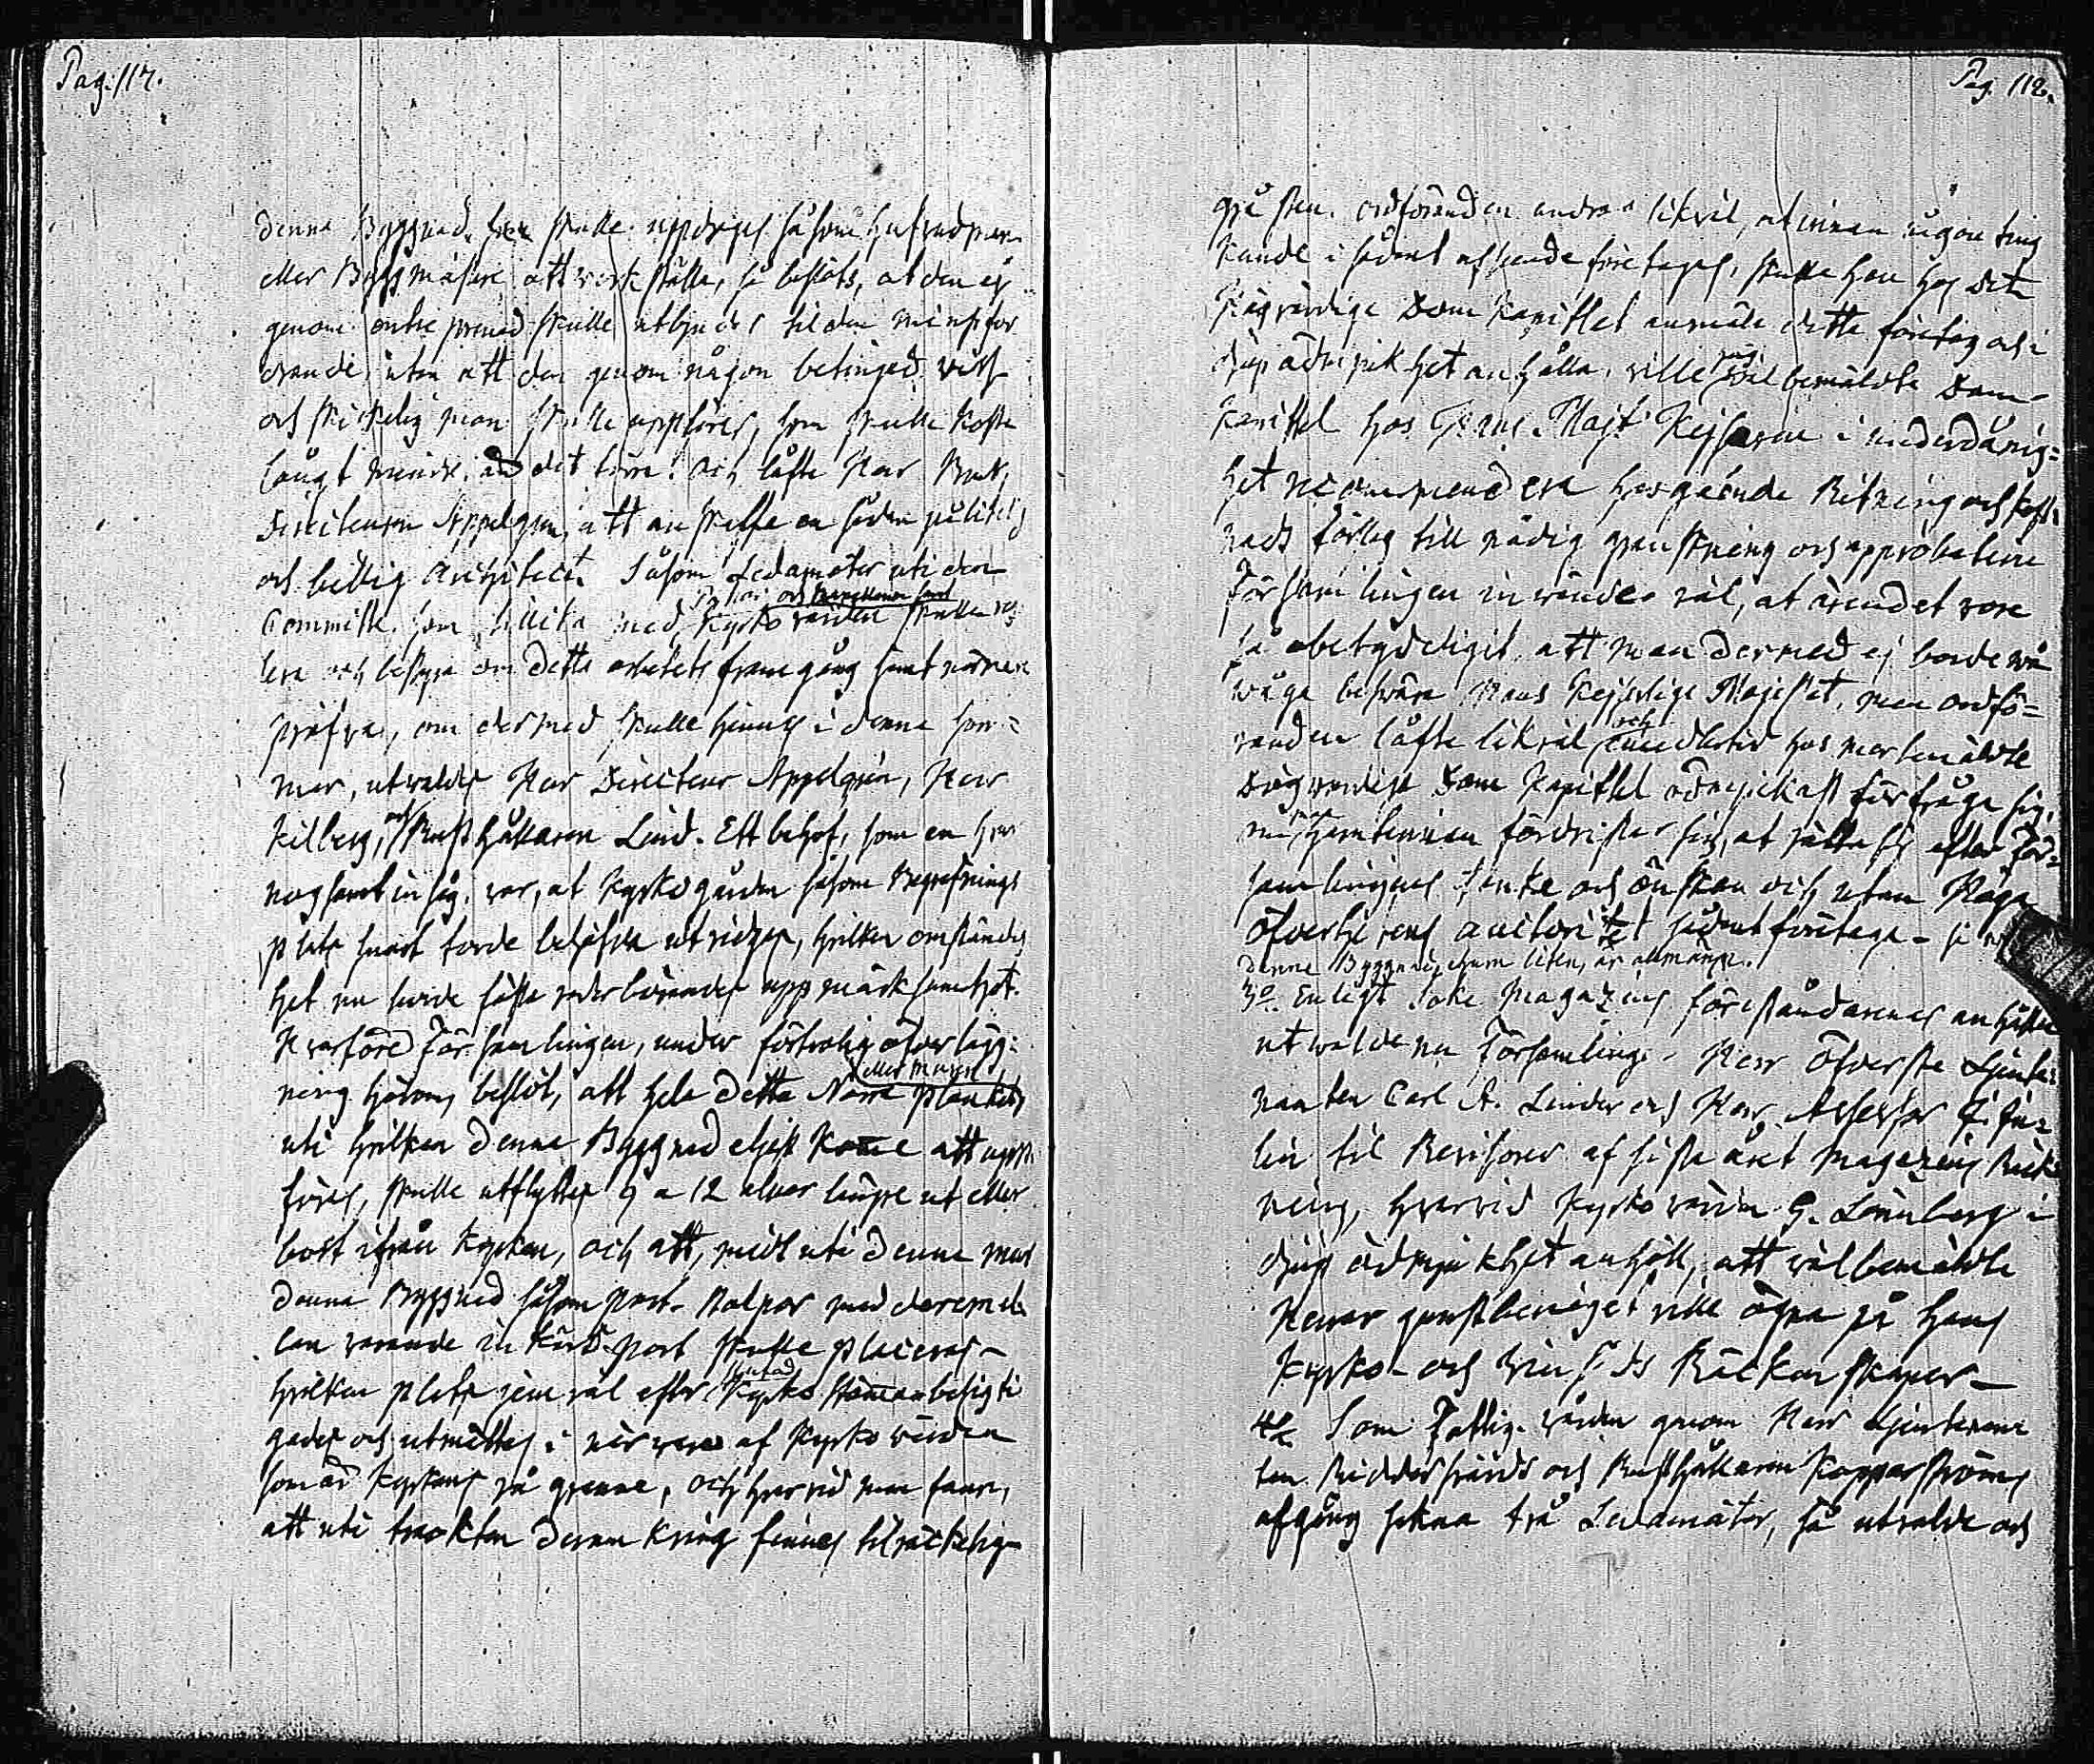 Pag. 117.
denna Byggnad, skulle uppdragas såsom hufvudman
eller Byggmästare att verkställa, så beslöts, at den ej
genom entreprenad skulle utbjudas til den minstfor
drande, utan att den genom någon betingad viss
och skickelig man skulle uppföras, som skulle kosta
långt mindre än det förra! och låfte Herr Bruks
Directeuren Appelgren, att anskaffa en sådan pålitelig
och billig Architect. Såsom Ledamöter uti den
Pastor och Kapellanen samt
Committé, som tillika med Kyrko värden skulle
och besörja om detta arbetets framgång samt närmare
pröfva, om dermed skulle hinnas i denna som=
mar, utvaldes Herr Directeur Appelgren, Herr
och
Kilberg, Rusthållaren Lind. Ett behof, som en hvar
nogsamt insåg, var, at Kyrkogården såsom Begrafnings
plats snart torde behöfva utvidgas, hvilken omständig
het nu borde fästa vederbörandes uppmärksamhet.
Hvarföre Församlingen, under förtrolig öfverlägg=
eller Muren
ning härom, beslöt, att hela detta Norra Planket
uti hvilken denna Byggnad eljest komme att upp
föras, skulle utflyttas 9 a 12 alnar längre ut eller
bort ifrån Kyrkan, och att, midt uti denna mur
denna Byggnad såsom port-stolpar med deremel
lan varande inkörs-port skulle placeras -
slutad
hvilken plats jemväl efter Kyrko stämman besigti
gades och utmättes i närvaro af Kyrko värden
som är Kyrkans på granne, och hvarvid man fann,
att uti trakten deromkring finnes tilräckelig
Pag. 118.
gråsten. Ordföranden androg likväl, at innan någon ting
kunde i sådant afseende företagas, skulle han hos det
Högvördige Dom Kapitlet anmäla detta företag och i
djup ödmjukhet anhålla, ville välbemäldte Dom-
Kapittel hos Hans Majt Kejsaren i underdånig=
het recommendera hosgående Ritning och kost
nads förslag till nådig granskning och approbation
Församlingen invände väl, at ärendet vore
så obetydeligit att man dermed ej borde
våga besvära Hans Kejserlige Majestet, men ordfö=
och
randen låfte likväl imedlertid hos merbemäldte
Högvördige Dom Kapittel ödmjukast förfråga sig,
fördristar sig, at rätta sig efter För=
samlingens tanke och önskan och utan Höga
Öfverhetens auctoritet sådant företaga -
denna Byggnad, ehuru liten, är allmänn.
3o Enligt Soke Magazins föreståndarenas anhållan
utvalde nu Församlinge- Herr Öfverste Lieute=
nanten Carl A. Linder och Herr Assessor
lin til Revisorer af sista året Magazins Räk
ning, hvarvid Kyrko värden G. Lönnberg i
djup ödmjukhet anhöll, att välbemäldte
Herrar gunstbenäget ville ögna på hans
Kyrko- och Räkenskaper -
4o Som Fattig-vården genom Herr Lieutenan
ten Riddersvärds och Rusthållaren Kopparströms
afgång sakna två Ledamöter, så utvalde och